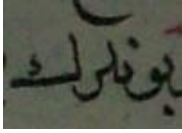 بونكرك